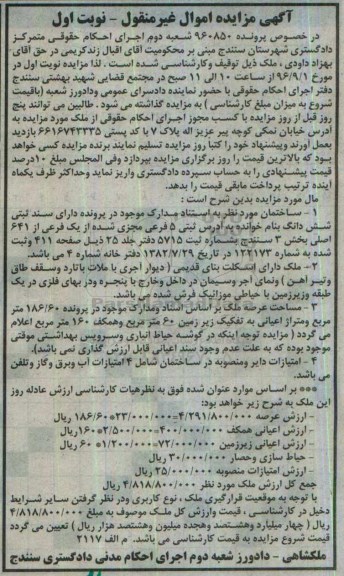 آگهی مزایده اموال غیرمنقول - نوبت اول
در خصوص پرونده ۹۶۰۸۵۰ شعبه دوم اجرای احکام حقوقی متمرکز
دادگستری شهرستان سنندج مبنی بر محکومیت آقای اقبال زندکریمی در حق آقای
بهزاد داودی ، ملک ذیل توقیف وکارشناسی شده است . لذا مزایده نوبت اول در
مورخ ۹۶/۹/۱ از ساعت ۱۰ الی ۱۱ صبح در مجتمع قضایی شهید بهشتی سنندج
دفتر اجرای احکام حقوقی با حضور نماینده دادسرای عمومی ودادورز شعبه (باقیمت
شروع به میزان مبلغ کارشناسی ) به مزایده گذاشته می شود . طالبین می توانند پنج
روز قبل از روز مزایده با کسب مجوز اجرای احکام حقوقی از ملک مورد مزایده به
آدرس خیابان نمکی کوچه پیر عزیز اله پلاک ۷ با کد پستی ۶۶۱۶۷۴۳۳۳۵ بازدید
بعمل آورند وپیشنهاد خود را کتبا روز مزایده تسلیم نمایند برنده مزایده کسی خواهد
بود که بالاترین قیمت را روز برگزاری مزایده بپردازد وفی المجلس مبلغ ۱۰درصد
قیمت پیشنهادی را به حساب سپرده دادگستری واریز نماید وحداکثر ظرف یکماه
آینده ترتیب پرداخت مابقی قیمت را بدهد.
مال مورد مزایده بدین شرح است :
۱ - ساختمان مورد نظر به استناد مدارک موجود در پرونده دارای سند ثبتی
شش دانگ بنام خوانده به آدرس ثبتی ۵ فرعی مجزی شده از یک فرعی از ۶۴۱
اصلی بخش ۳ سنندج بشماره ثبت ۵۷۱۵ دفتر جلد ۲۵ ذیل صفحه ۴۱۱ وثبت
شده به شماره ۱۲۲۱۷۳ در تاریخ ۱۳۸۲/۷/۲۹ دفتر خانه شماره ۴ می باشد.
۲ - ملک دارای اسکلت بنای قدیمی ( دیوار آجری با ملات باتارد وسقف طاق
وتیر اهن ) ونمای اجر وسیمان در داخل وخارج با پنجره ودر بهای فلزی در یک
طبقه وزیرزمین با حیاطی موزائیک فرش شده می باشد.
۳ - مساحت عرصه ملک بر اساس اسناد ومدارک موجود در پرونده ۱۸۶/۶۰ متر
مربع ومتراژ اعیانی به تفکیک زیر زمین ۶۰ متر مربع وهمکف ۱۶۰ متر مربع اعلام
می گردد ( مزایده توجه اینکه در گوشه حیاط انباری وسرویس بهداشتی موقتی
موجود بوده که به علت عدم وجود سند اعیانی قابل ارزش گذاری نمی باشد).
۴ - امتیازات دایر ومنصوبه در ساختمان شامل ۴ امتیازات آب وبرق وگاز وتلفن
می باشد.
*** بر اساس موارد عنوان شده فوق به نظرهیات کارشناسی ارزش عادله روز
این ملک به شرح زیر خواهد بود:
- ارزش عرصه ۴/۲۹۱/۸۰۰/۰۰۰=۲۳/۰۰۰/۰۰۰*۱۸۶/۶۰ ریال
- ارزش اعیانی همکف ۴۰۰/۰۰۰/۰۰۰=۲/۵۰۰/۰۰۰*۱۶۰ ریال
- ارزش اعیانی زیرزمین ۷۲/۰۰۰/۰۰۰=۱/۲۰۰/۰۰۰* ۶۰ ریال
- حیاط سازی وحصار ۳۰/۰۰۰/۰۰۰ ریال
- ارزش امتیازات منصوبه ۲۵/۰۰۰/۰۰۰ ریال
جمع کل ارزش ملک مورد نظر ۴/۸۱۸/۸۰۰/۰۰۰ ریال
با توجه به موقعیت قرارگیری ملک ، نوع کاربری ودر نظر گرفتن سایر شرایط
دخیل در کارشناسی ، قیمت وارزش کل ملک موصوف به مبلغ ۴/۸۱۸/۸۰۰/۰۰۰
ریال ( چهار میلیارد وهشتصد وهجده میلیون وهشتصد هزار ریال ) تعیین می گردد
قیمت شروع مزایده به قیمت کارشناسی می باشد. م الف ۲۱۱۷
ملکشاهی - دادورز شعبه دوم اجرای احکام مدنی دادگستری سنندج